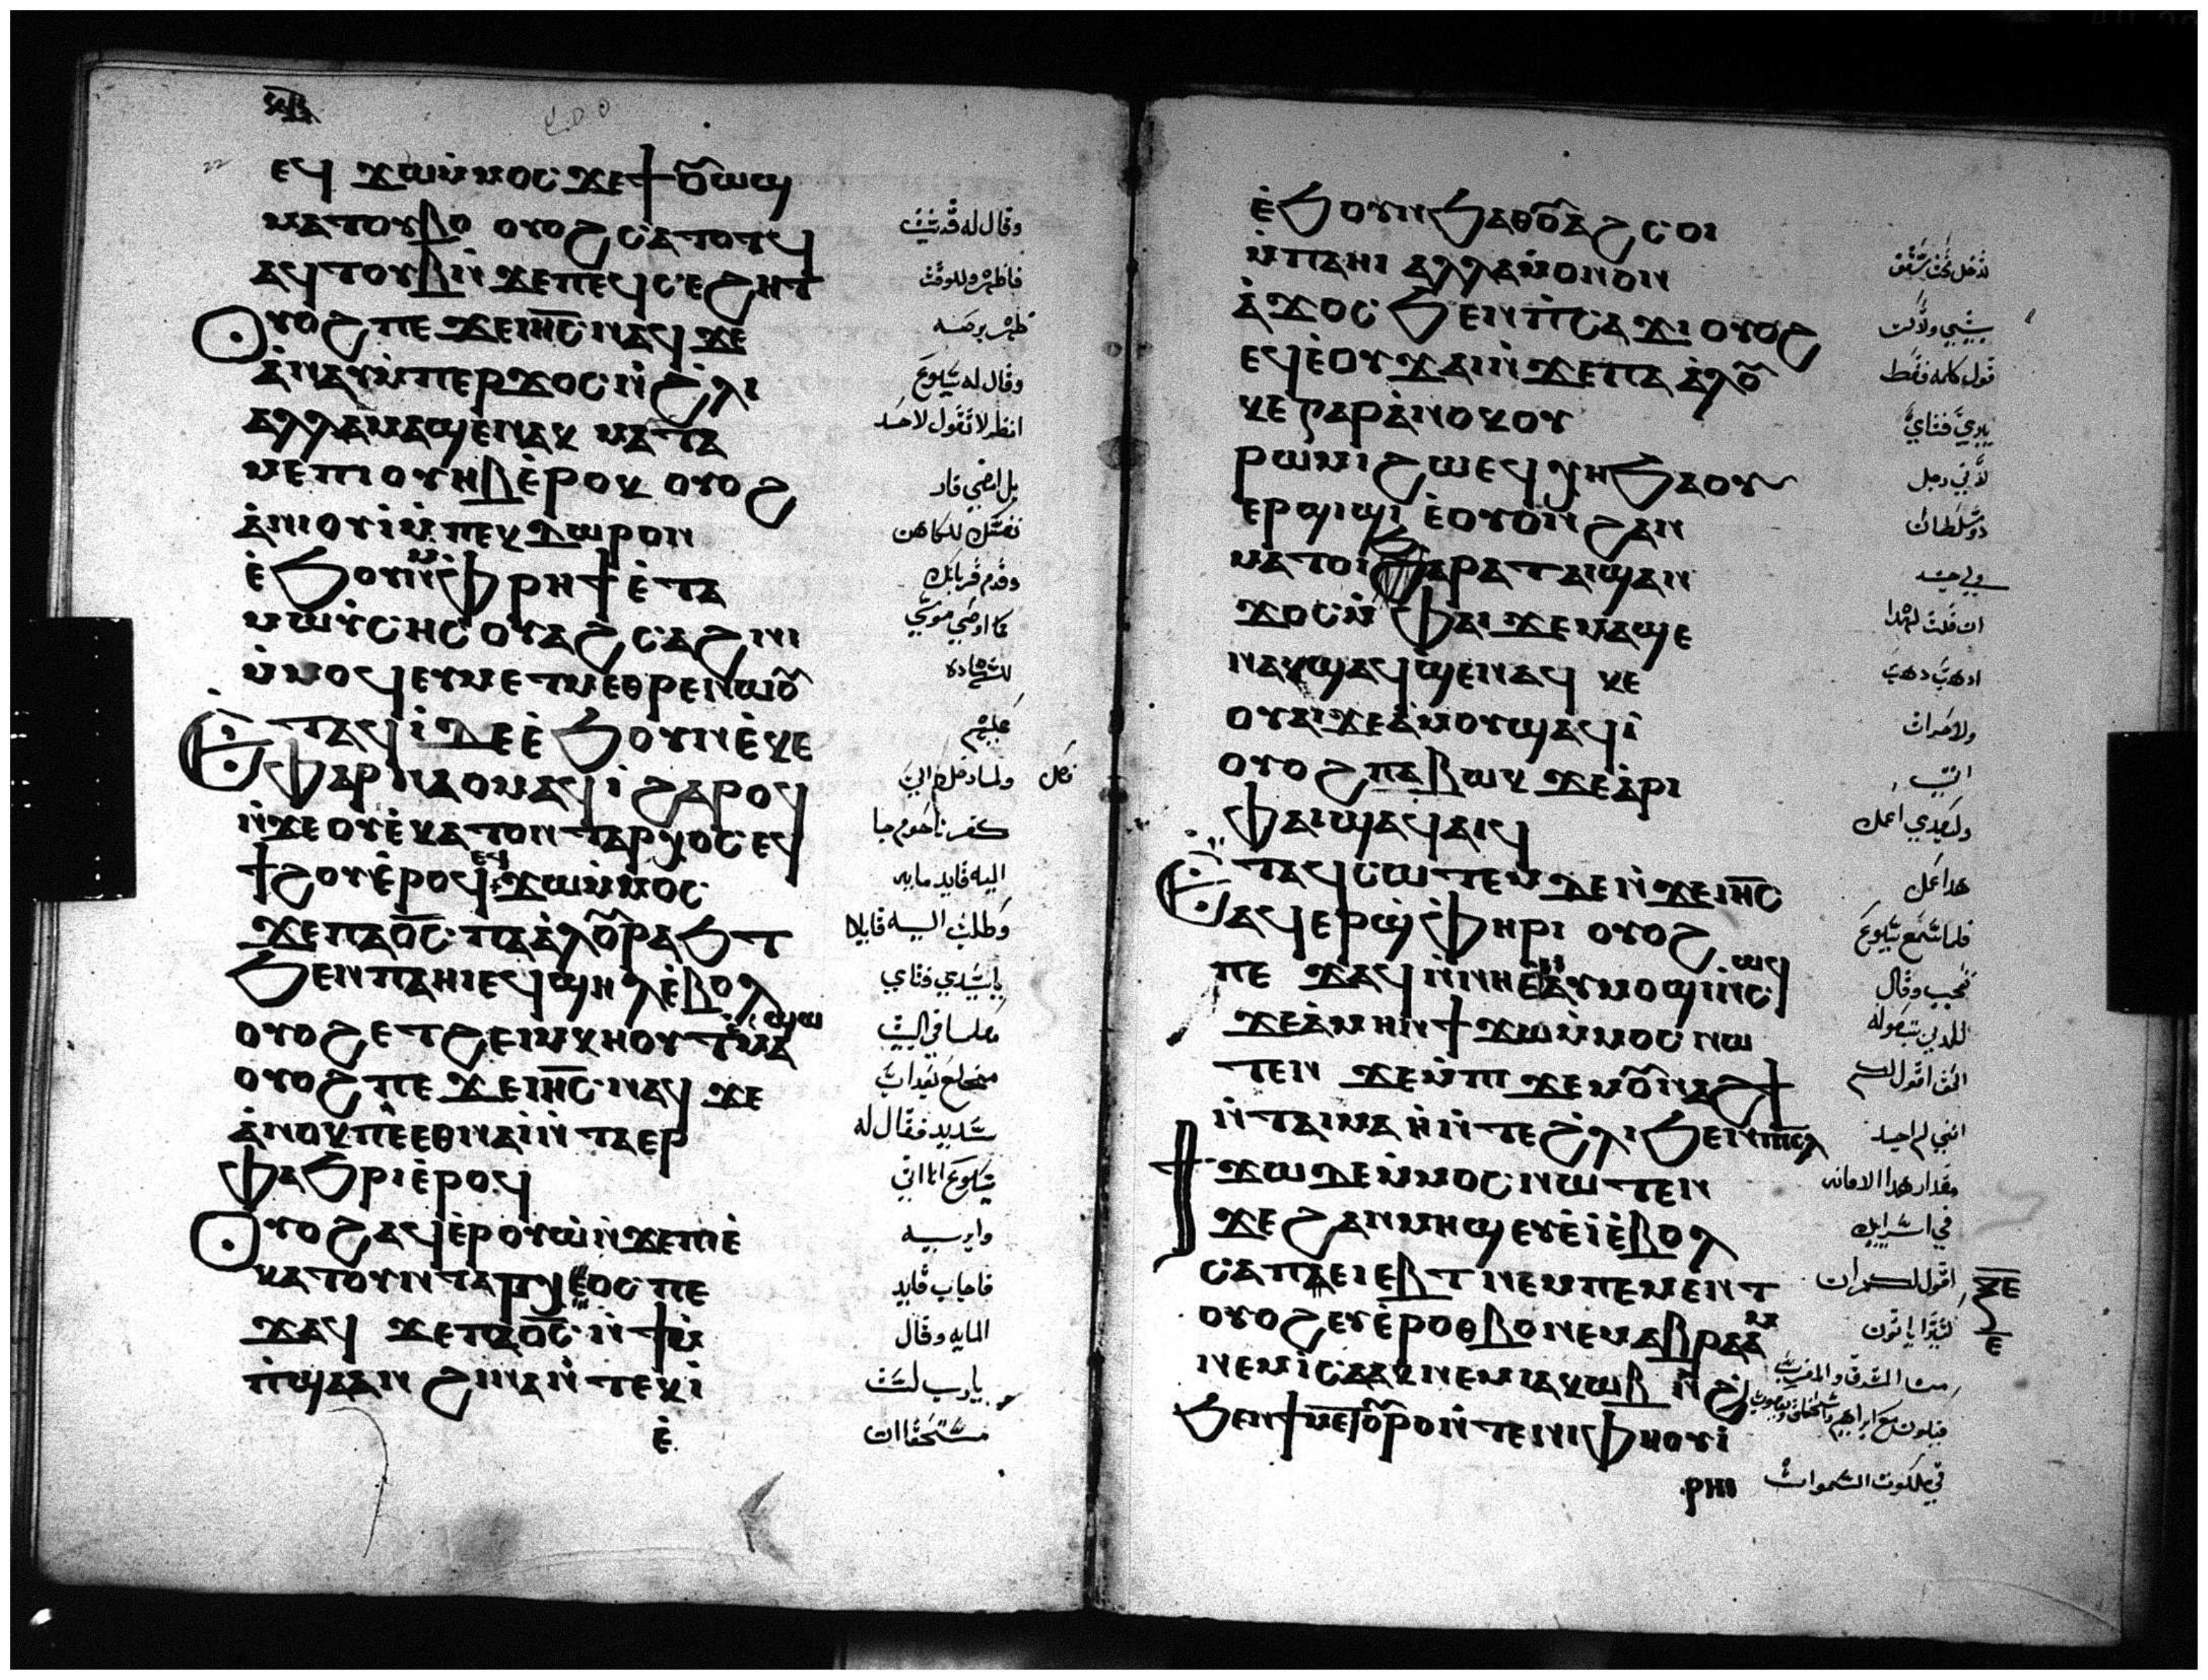 ⲉϥ ϫⲱⲙⲙⲟⲥ ϫⲉϯⲟⲩⲱϣ
ⲙⲁⲧⲟⲩⲃⲟ ⲟⲩⲟϩ ⲥⲁⲧⲟⲧϥ
ⲁϥⲧⲟⲩⲃⲛ̇ϫⲉⲡⲉϥⲥⲉϩⲧ
Ⲟⲩⲟϩ ⲡⲉ ϫⲉⲓⲏ̅ⲥ̅ ⲛⲁϥ ϫⲉ
ⲁ̇ⲛⲁⲩⲙ̇ⲡⲉⲣϫⲟⲥ ⲛ̇ϩⲗⲓ
ⲁⲗⲗⲁⲙⲁϣⲉ̇ⲛⲁⲕ ⲙⲁⲧⲁ
ⲙⲉⲡⲓⲟⲩⲏⲃⲉ̇ⲣⲟⲕ ⲟⲩⲟϩ
ⲁ̇ⲛⲓⲟⲩⲓ̇ⲙ̇ⲡⲉⲕⲇⲱⲣⲟⲛ
ⲉ̇ϧⲟⲩⲛⲙ̇ⲫⲣⲏϯ ⲉ̇ⲧⲁ
ⲙⲱⲩⲥⲏⲥ ⲟⲩⲁϩⲥⲁϩⲛⲓ
ⲙ̇ⲙⲟϥⲉⲩⲙⲉⲧⲙⲉⲑⲣⲉⲛⲱⲟⲩ
Ⲉ̇ⲧⲁϥⲓ̇ ⲇⲉⲉ̇ϧⲟⲩⲛⲉ̇ⲕⲉ
ⲫⲁⲣⲛⲁⲟⲩⲙⲁϥⲓ̇ ϩⲁⲣⲟϥ
ⲛ̇ϫⲉⲟⲩⲉ̇ⲕⲁⲧⲟⲛⲧⲁⲣⲭⲟⲥ ⲉϥ
ϯϩⲟⲉ̇ⲣⲟϥ ⲉϥϫⲱⲙ̇ⲙⲟⲥ
ϫⲉⲡⲁⲟ̅ⲥ̅ ⲡⲁⲁ̇ⲗⲟⲩⲣⲁϧⲧ
ϧⲉⲛⲡⲁⲏⲓⲉϥϣⲏⲗⲉ̇ⲃⲟⲗ
ⲟⲩⲟϩⲉⲧϩⲉⲙⲕⲏⲟⲩⲧⲉⲙⲁϣⲱ
ⲟⲩⲟϩ ⲡⲉ ϫⲉⲓⲏ̅ⲥ̅ ⲛⲁϥ ϫⲉ
ⲁ̇ⲛⲟⲕⲡⲉⲉⲑⲛⲁⲓ̇ⲛ̇ⲧⲁⲉⲣ
ⲫⲁϧⲣⲓⲉ̇ⲣⲟϥ
Ⲟⲩⲟϩⲁϥⲉ̇ⲣⲟⲩⲱ̇ⲛ̇ϫⲉⲡⲓⲉ̇
ⲕⲁⲧⲟⲩⲛⲧⲁⲣⲭⲟⲥ ⲡⲉ
ϫⲁϥ ϫⲉⲡⲁⲟ̅ⲥ̅ ⲛ̇ϯⲙ̇
ⲡ̇ϣⲁⲁⲛ ϩⲓⲛⲁⲛ̇ⲧⲉⲕⲓ̇
ⲉ̇
وقال له قد شيت
فاطهر وللوقت
طهر برصه
وقال له يسوع
انظر لا تقول لاحد
بل امضي فار
نفسك للكاهن
وقدم قربانك
كما اوصي موسي
للشهاده
عليهم
ولما دخل الي
كفرناحوم جا
اليه قايد مايه
وطلب اليه قايلا
ياسيدي فتاي
ملقا في البيت
مخلع بعذاب
شديد فقال له
يسوع انا اتي
وابريه
فاجاب قايد
المايه وقال
يارب لست
مستحقا ان
ⲉ̇ϧⲟⲩⲛϧⲁⲑⲟⲩⲁϩⲥⲟⲓ
ⲙ̇ⲡⲁⲏⲓ ⲁⲗⲗⲁⲙ̇ⲟⲛⲟⲛ
ⲁ̇ϫⲟⲥ ϧⲉⲛⲡⲥⲁϫⲓ ⲟⲩⲟϩ
ⲉϥⲉ̇ⲟⲩϫⲁⲓⲛ̇ϫⲉⲡⲁⲁ̇ⲗⲟⲩ
ⲕⲉⲅⲁⲣⲁ̇ⲛⲟⲕⲟⲩ
ⲣⲱⲙⲓϩⲱⲉϥⲭⲏϧⲁⲟⲩ
ⲉⲣϣⲓϣⲓ ⲉ̇ⲟⲩⲟⲛϩⲁⲛ
ⲙⲁⲧⲟⲓϧⲁⲣⲁⲧⲁⲓϣⲁⲛ
ϫⲟⲥⲙ̇ ⲫⲁⲓ ϫⲉⲙⲁϣⲉ
ⲛⲁⲕϣⲁϥϣⲉⲛⲁϥ ⲕⲉ
ⲟⲩⲁⲓϫⲉⲁ̇ⲙⲟⲩϣⲁϥⲓ̇
ⲟⲩⲟϩⲡⲁⲃⲱⲕ ϫⲉⲁ̇ⲣⲓ
ⲫⲁⲓϣⲁϥⲁⲓϥ
Ⲉ̇ⲧⲁϥⲥⲱⲧⲉⲙⲇⲉⲛ̇ϫⲉⲓⲏ̅ⲥ̅
ⲁϥⲉⲣϣ̇ⲫⲏⲣⲓ ⲟⲩⲟϩ
ⲡⲉ ϫⲁϥⲛ̇ⲛⲏⲉⲑⲁⲩⲙⲟϣⲓⲛⲥⲱϥ
ϫⲉⲁ̇ⲙⲏⲛϯϫⲱⲙ̇ⲙⲟⲥ ⲛⲱ
ⲧⲉⲛ ϫⲉⲙ̇ⲡⲓϫⲉⲙⲟⲩⲛⲁϩϯ
ⲛ̇ⲧⲁⲓⲙⲁⲏ̇ⲛ̇ⲧⲉϩ̇ⲗⲓϧⲉⲛⲡⲓ̅ⲥ̅ⲗ̅
Ϯϫⲱⲇⲉⲙ̇ⲙⲟⲥ ⲛⲱⲧⲉⲛ
ϫⲉϩⲁⲛⲙⲏϣⲉⲩⲉ̇ⲓ̇ⲉ̇ⲃⲟⲗ
ⲥⲁⲡⲉⲓⲉⲃⲧ ⲛⲉⲙⲡⲉⲙⲉⲛⲧ
ⲟⲩⲟϩⲉⲩⲉ̇ⲣⲟⲑⲃⲟⲛⲉⲙⲁⲃⲣⲁⲁⲙ
ⲛⲉⲙⲓⲥⲁⲁⲕⲛⲉⲙⲓⲁⲕⲱⲃ ⲛ̇ϩ
ϧⲉⲛϯⲙⲉⲧⲟⲩⲣⲟⲛ̇ⲧⲉⲛⲓⲫⲏⲟⲩⲓ̇
لتدخل تحت سقف
بيتي ولاكن
قول كلمه فقط
يبري فتاي
لاني رجل
ذو سلطان
ولي جند
ان قلت لهذا
اذهب ذهب
ولاخر ات
اتي
ولعبدي اعمل
هذا عمل
فلما سمع يسوع
تعجب وقال
للذين يتبعوله
الحق اقول لكم
انني لم اجد
مقدار هذا الامانه
في اسراييل
اقول لكم ان
كثيرا ياتون
من المشرق والمغرب
فيتكون مع ابراهيم واسحق ويعقوب
في ملكوت السموات